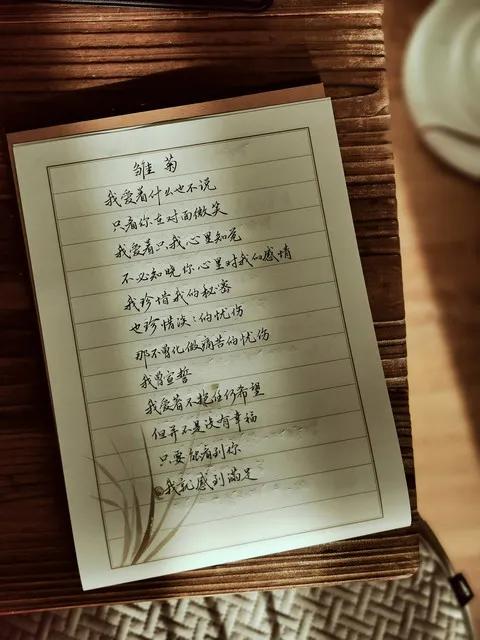 雏菊
我爱着什么也不说
只看你在对面微笑
我爱着只我心里知觉
不必知晓你心里对我的感情
我珍惜我的秘密
也珍惜淡淡的忧伤
那不曾化做痛苦的忧伤
我曾宣誓
我爱着不抱任何希望
但并不是没有幸福
只要能看到你
我就感到满足